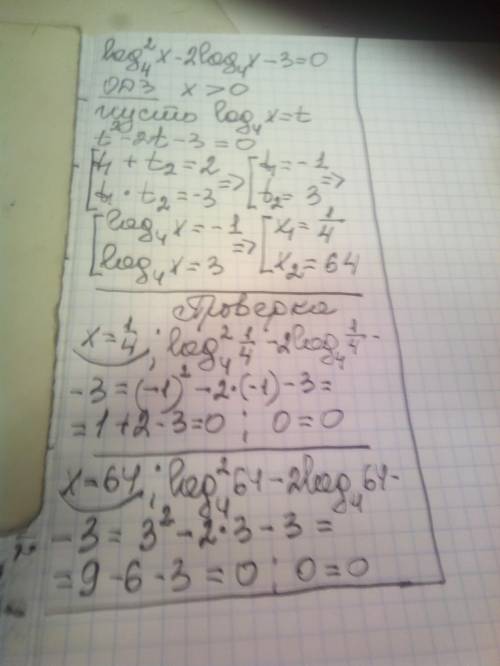 log₄²x-2log₄x-3=0
ОДЗ x>0
пусть log₄x=t
t²-2t-3=0
[t₁+t₂=2 => [t₁=-1
[t₁·t₂=-3 [t₂=3 =>
[log₄x=-1 => [x₁=1/4
[log₄x=3 [x₂=64
Проверка
x=1/4; log₄²1/4-2log₄1/4-
-3=(-1)²-2·(-1)-3=
=1+2-3=0; 0=0
x=64; log₄²64-2log₄64-
-3=3²-2·3-3=
=9-6-3=0; 0=0